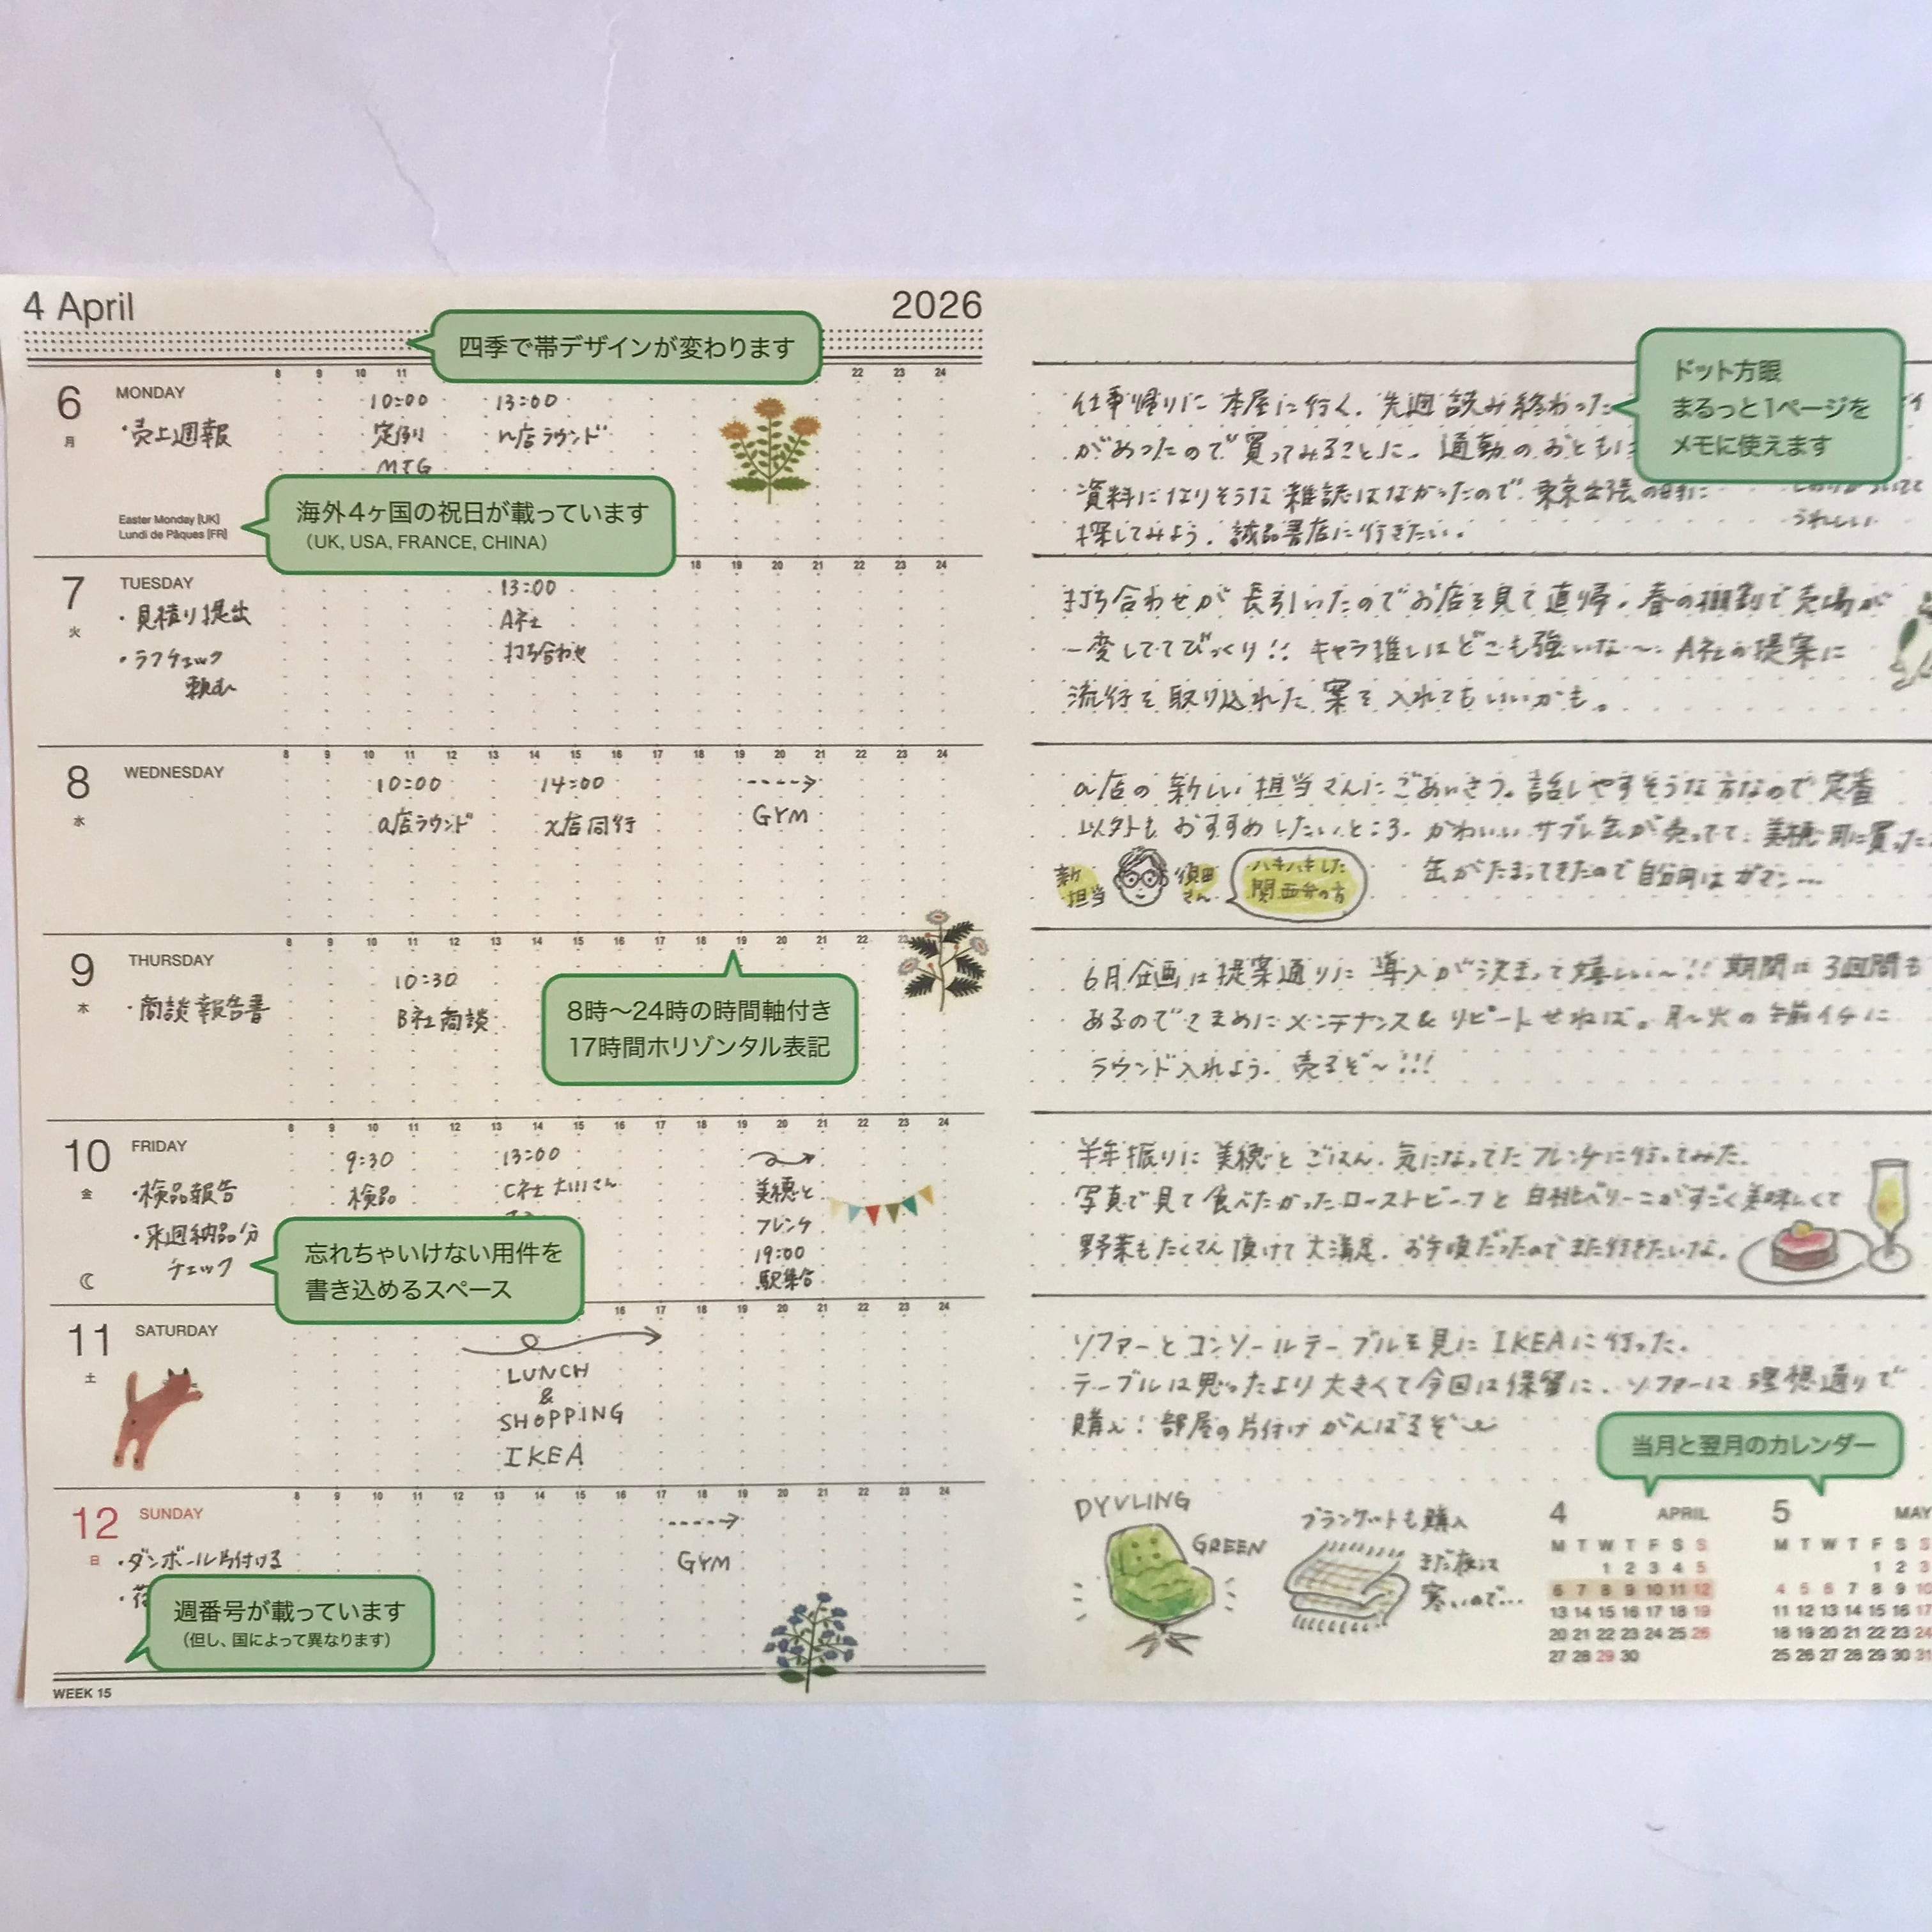 4 April
2026
四季で帯デザインが変わります
8 9 10 11 22 23 24
6 MONDAY
月
・売上週報
10:00
定例
MTG
13:00
n店ラウンド
Easter Monday [UK]
Lundi de Pâques [FR]
海外4ヶ国の祝日が載っています
(UK, USA, FRANCE, CHINA)
18 19 20 21 22 23 24
7 TUESDAY
火
・見積り提出
・ラフチェック
頼む
13:00
A社
打ち合わせ
8 9 10 11 12 13 14 15 16 17 18 19 20 21 22 23 24
8 WEDNESDAY
水
10:00
a店ラウンド
14:00
x店同行
GYM
8 9 10 11 12 13 14 15 16 17 18 19 20 21 22 23
9 THURSDAY
木
・商談報告書
10:30
B社商談
8時〜24時の時間軸付き
17時間ホリゾンタル表記
8 9 10 11 12 13 14 15 16 17 18 19 20 21 22 23 24
10 FRIDAY
金
・検品報告
・来週納品分
チェック
9:30
検品
13:00
C社 大川さん
美穂と
フレンチ
19:00
駅集合
忘れちゃいけない用件を
書き込めるスペース
16 17 18 19 20 21 22 23 24
11 SATURDAY
土
LUNCH
&
SHOPPING
IKEA
8 9 10 11 12 13 14 15 16 17 18 19 20 21 22 23 24
12 SUNDAY
日
・ダンボール片付ける
GYM
週番号が載っています
(但し、国によって異なります)
WEEK 15
ドット方眼
まるっと1ページを
メモに使えます
仕事帰りに本屋に行く。先週読み終わった
があったので買ってみることに。通勤のおともに
資料になりそうな雑誌はなかったので、東京出張の時に
探してみよう。誠品書店に行きたい。
うれしい
打ち合わせが長引いたのでお店を見て直帰。春の棚割で売場が
一変しててびっくり!! キャラ推しはどこも強いな〜。A社の提案に
流行を取り込れた案を入れてもいいかも。
a店の新しい担当さんにごあいさつ。話しやすそうな方なので定番
以外もおすすめしたいところ。かわいいサブレ缶が売ってて、美穂用に買った
缶がたまってきたので自分用はガマン…
新担当
須田さん
ハキハキした
関西弁の方
6月企画は提案通りに導入が決まって嬉しい〜!! 期間は3週間も
あるのでこまめにメンテナンス&リピートせねば。月〜火の午前イチに
ラウンド入れよう。売るぞ〜!!!
半年振りに美穂とごはん。気になってたフレンチに行ってみた。
写真で見て食べたかったローストビーフと白桃ベリーニがすごく美味しくて
野菜もたくさん頂けて大満足。お手頃だったのでまた行きたいな。
ソファーとコンソールテーブルを見にIKEAに行った。
テーブルは思ったより大きくて今回は保留に、ソファーは理想通りで
購入!部屋の片付けがんばるぞ〜
当月と翌月のカレンダー
DYVLING
GREEN
ブランケットも購入
まだ夜は
寒いので…
4 APRIL
M T W T F S S
1 2 3 4 5
6 7 8 9 10 11 12
13 14 15 16 17 18 19
20 21 22 23 24 25 26
27 28 29 30
5 MAY
M T W T F S S
1 2 3
4 5 6 7 8 9 10
11 12 13 14 15 16 17
18 19 20 21 22 23 24
25 26 27 28 29 30 31